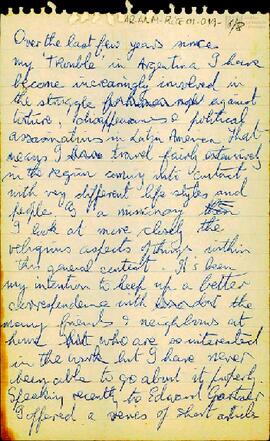 Over the last few years since
my 'Trouble' in Argentina I have
become increasingly involved in
the struggle against
torture, disappearances & political
assassinations in Latin America. That
means I travel fairly extensively
in the region coming into contact
with very different life styles and
people. As a missionary
I look at more closely the
religious aspects of things within
this general context. It's been
my intention to keep up a better
correspondence with the
many friends & neighbours at
home who are so interested
in the work but I have never
been able to go about it properly.
Speaking recently to Edward
I offered a series of short articles